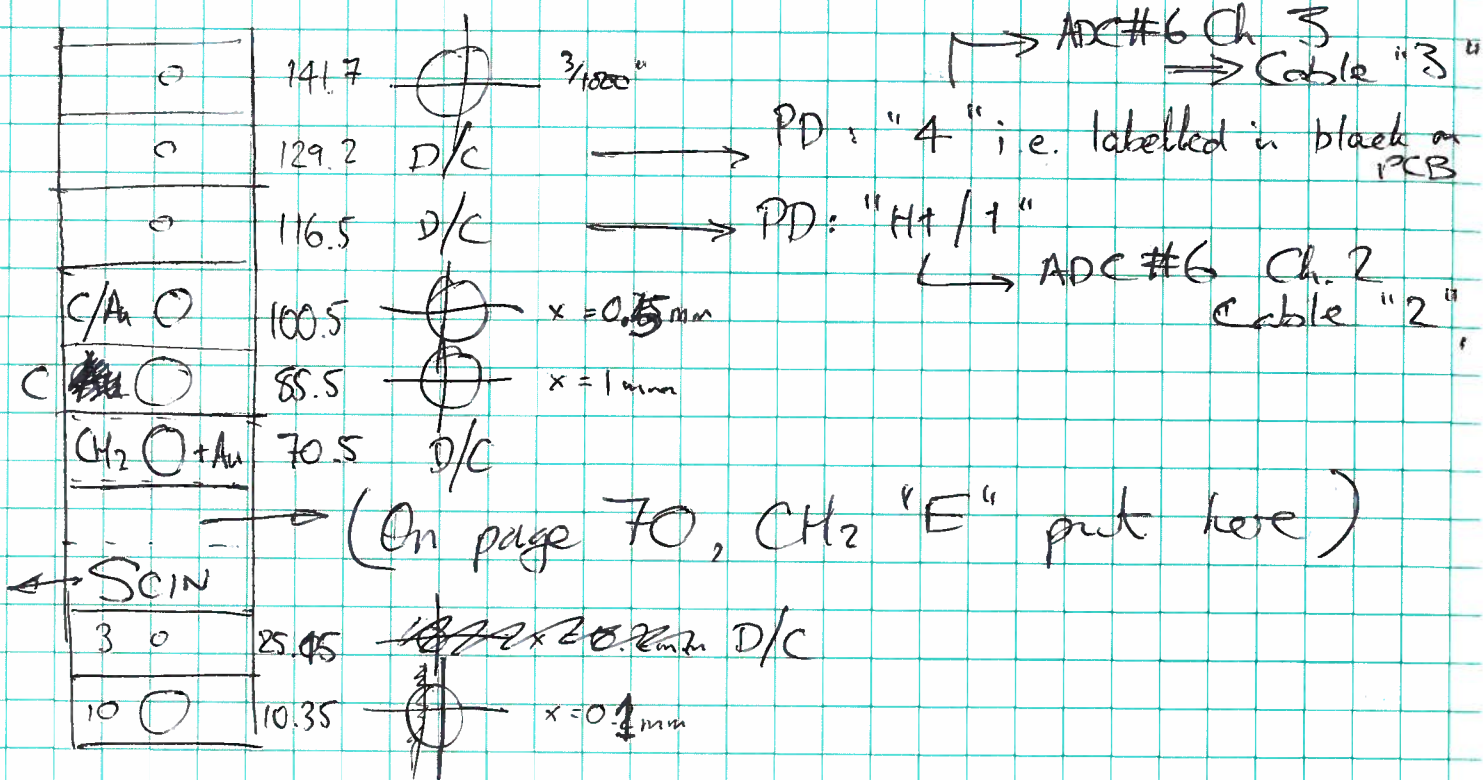 ADC#6 Ch 3
⟹ Cable "3"
141.7 3/1000"
129.2 D/C → PD: "4" i.e. labelled in black on PCB
116.5 D/C → PD: "H+/1"
ADC #6 Ch. 2
Cable "2"
C/Au 100.5 x = 0.5mm
C 85.5 x = 1mm
CH2 +Au 70.5 D/C
→ (On page 70, CH2 "E" put here)
SCIN
3 25.45 D/C
10 10.35 x=0.1mm